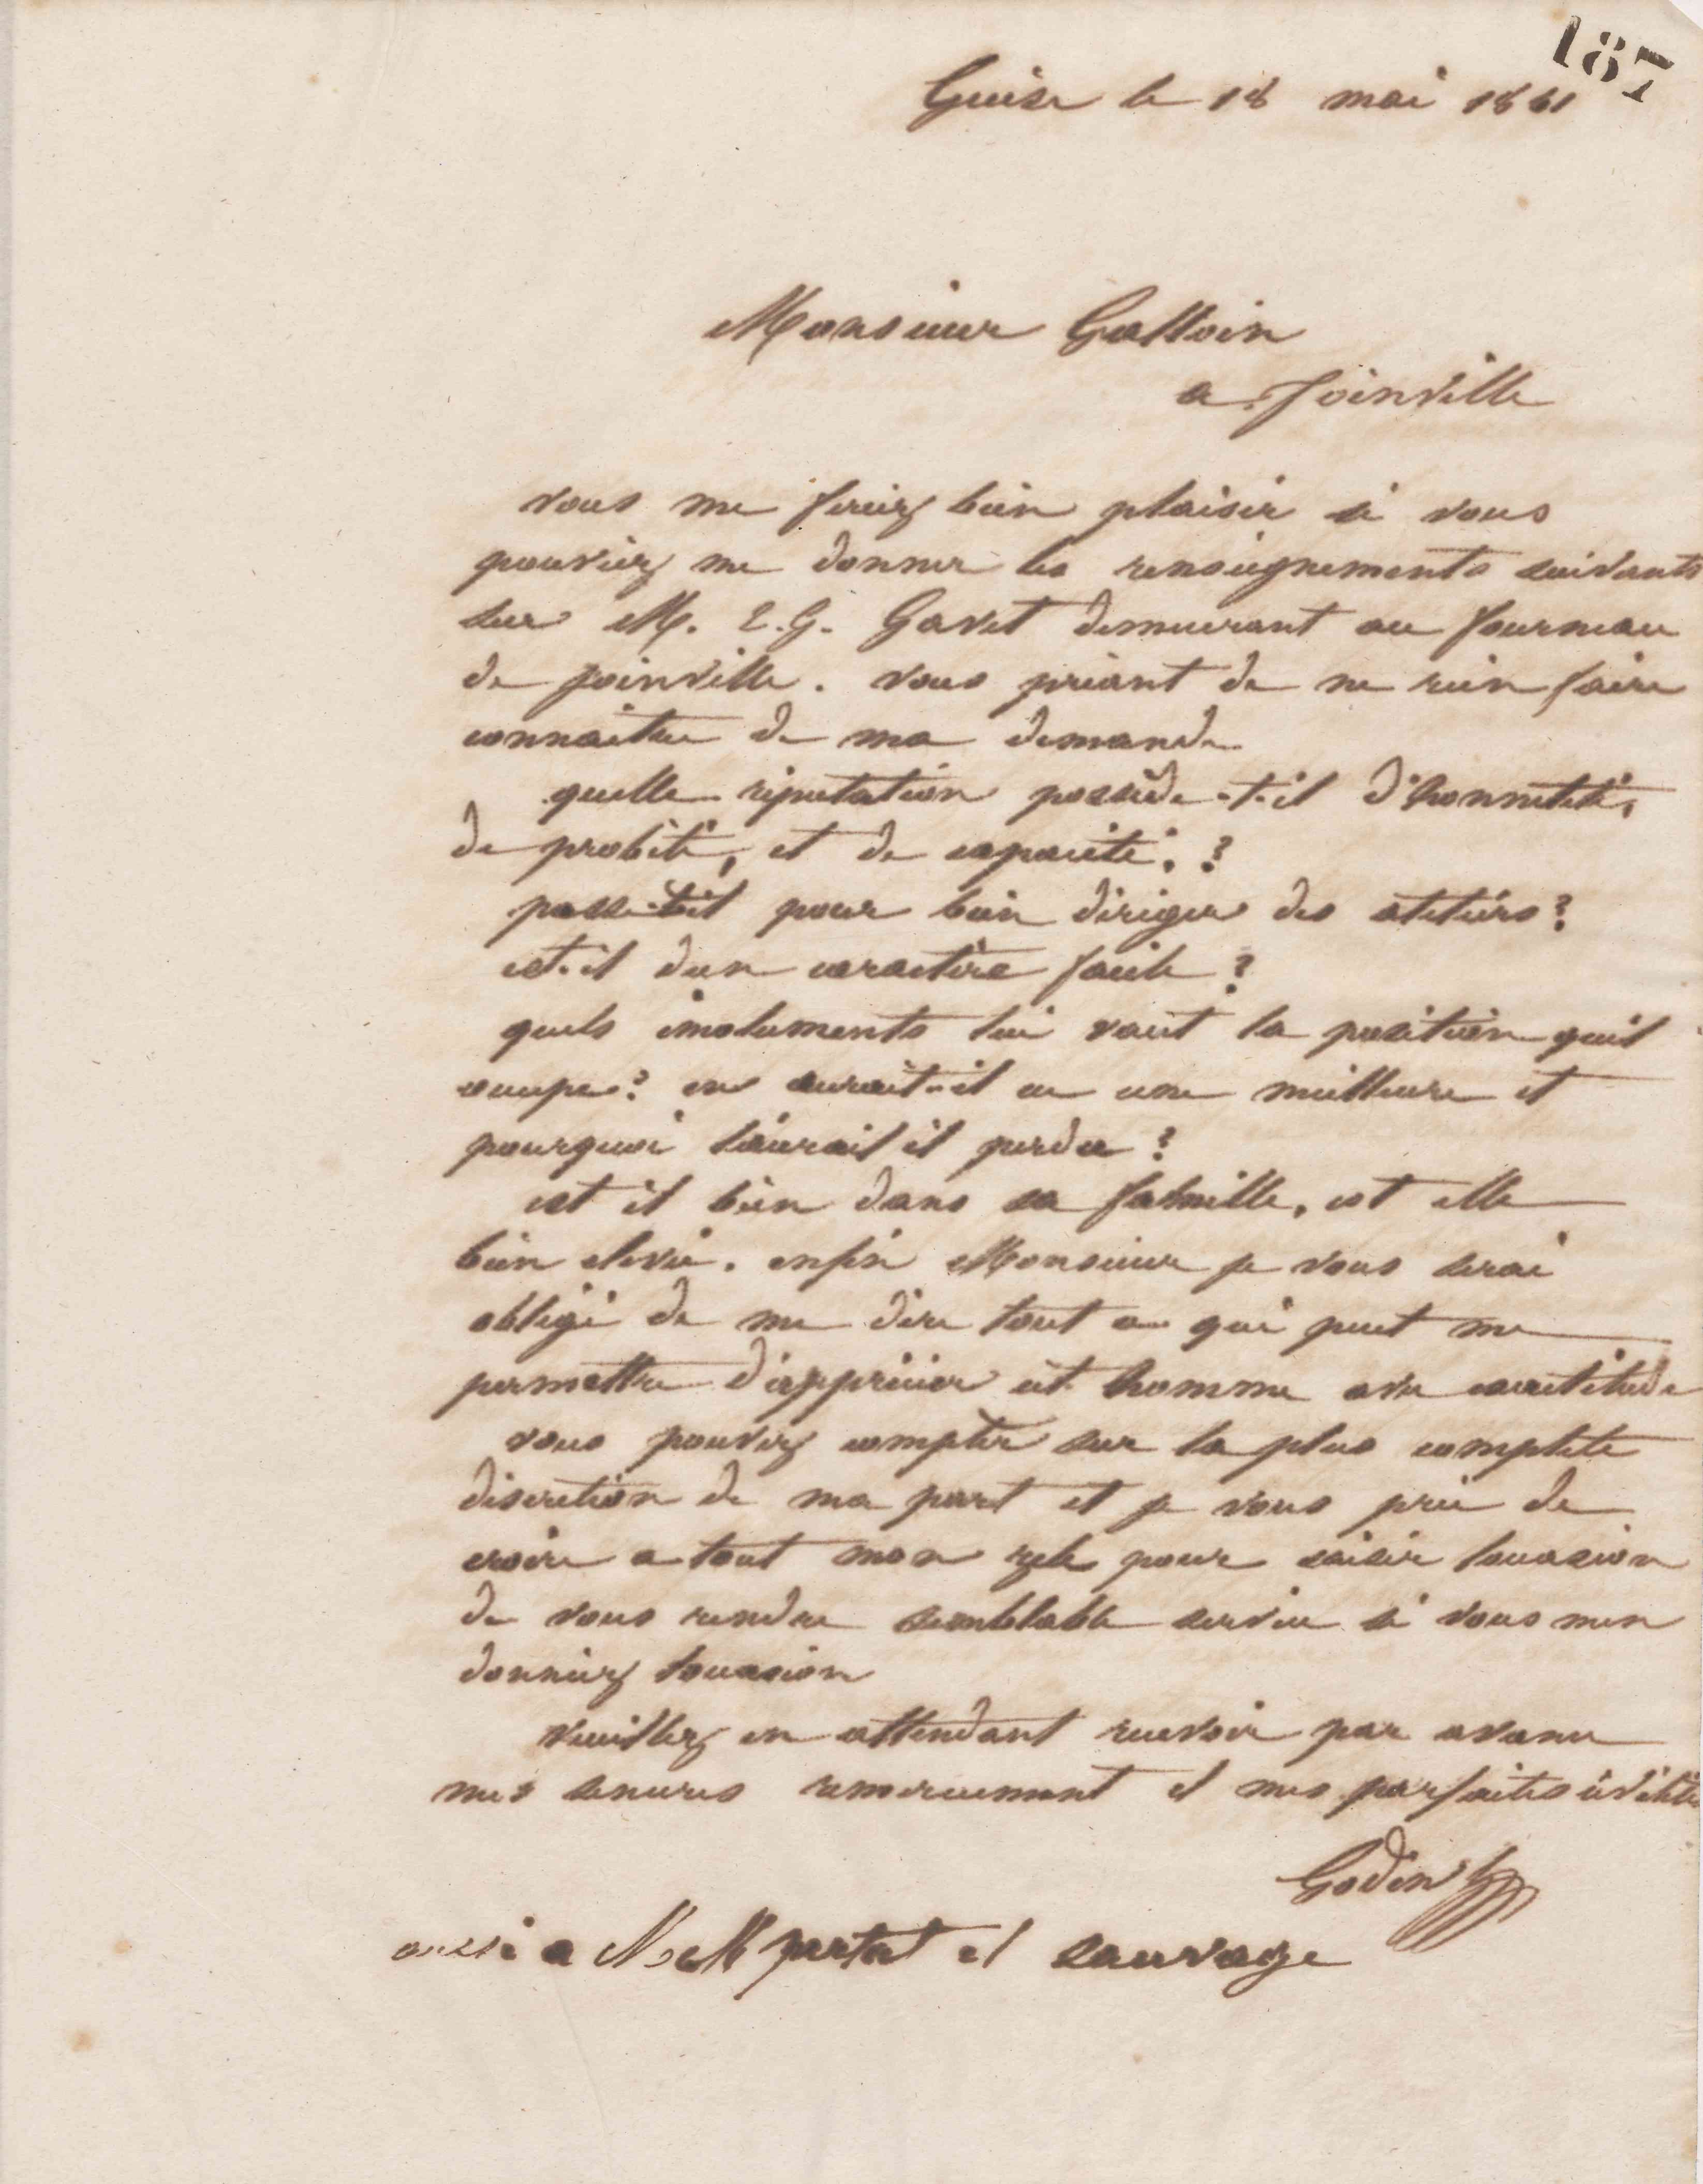 187
Guise le 18 mai 1861
Monsieur Galloin
a Joinville
vous me feriez bien plaisir si vous
pouviez me donner les renseignements suivants
sur M. E. G. Gavet demeurant au fourneau
de joinville. vous priant de ne rien faire
connaitre de ma demande
quelle réputation possède-t-il d'honnêteté,
de probité, et de capacité. ?
passe-t-il pour bien diriger des ateliers ?
est-il d'un caractère facile ?
quels émoluments lui vaut la position quil
occupe ? en aurait-il eu une meilleure et
pourquoi l'aurait il perdue ?
est il bien dans sa famille, est elle
bien elevée. enfin Monsieur je vous serai
obligé de me dire tout ce qui peut me
permettre d'apprécier cet homme avec exactitude
vous pouvez compter sur la plus complete
discretion de ma part et je vous prie de
croire a tout mon zele pour saisir loccasion
de vous rendre semblable service si vous men
donniez loccasion
veuillez en attendant recevoir par avance
mes sinceres remerciement et mes parfaites civilités
Godin
aussi a M M partat et sauvage